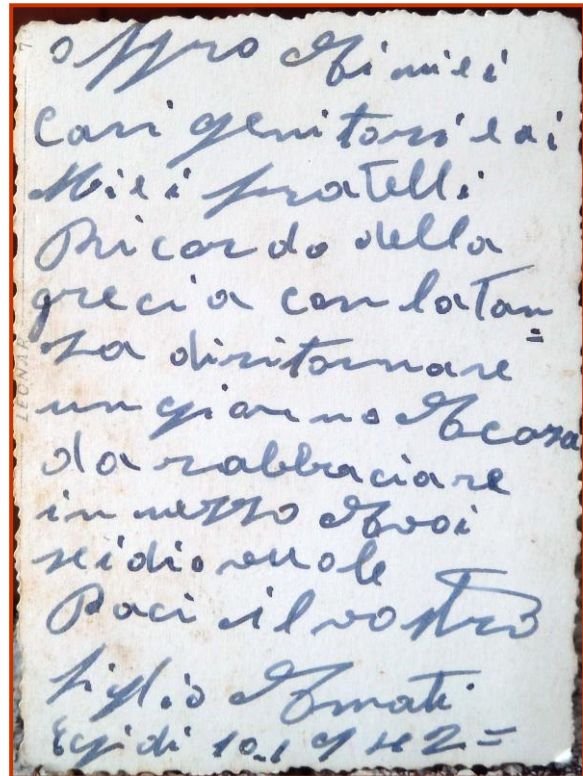 offro Ai miei
Cari genitori e ai
Miei fratelli
Ricordo della
grecia con latan=
za di ritornare
un giorno A casa
da rabbraciare
in mezzo A voi
se idio vuole
Baci il vostro
figlio Amati
Egidi
LEONAR